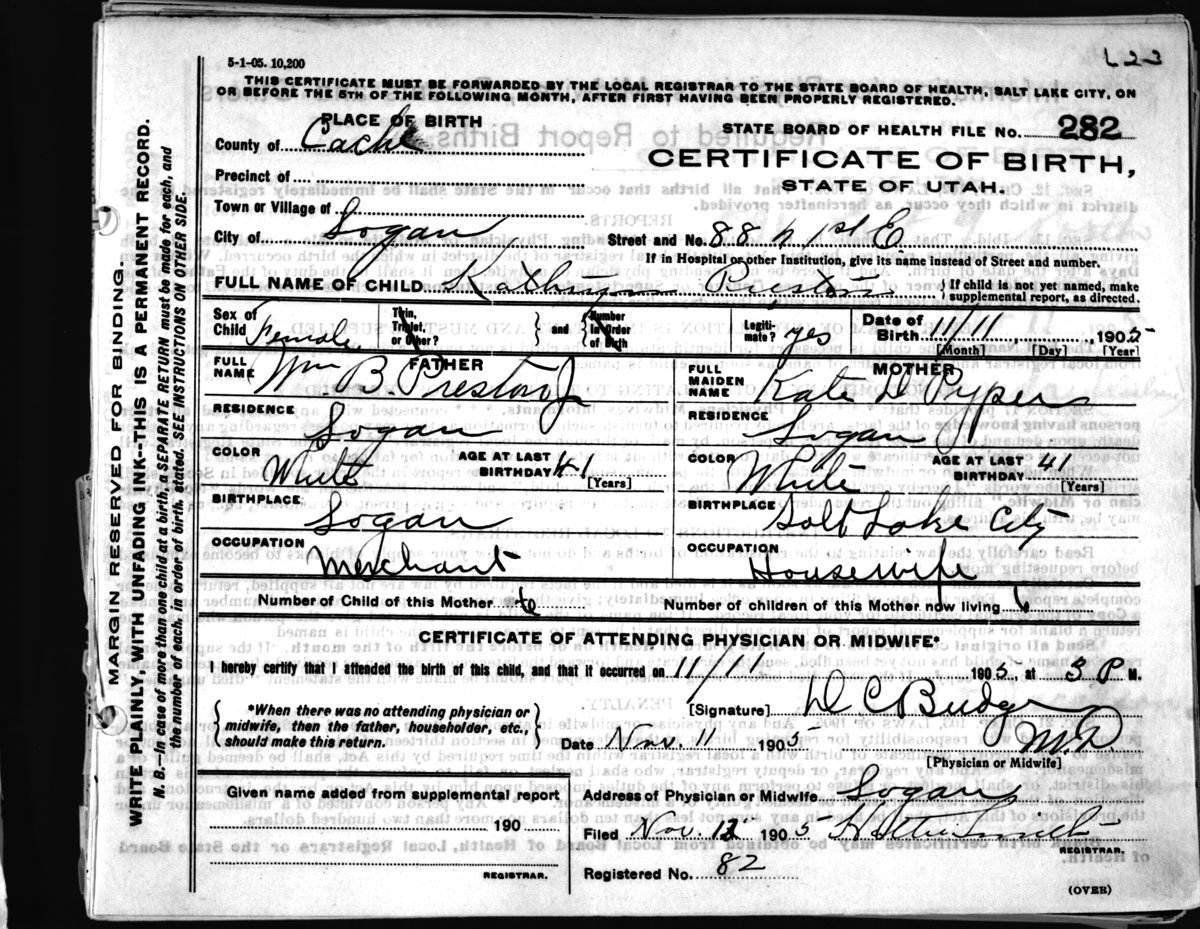 L23
5-1-05. 10,200
THIS CERTIFICATE MUST BE FORWARDED BY THE LOCAL REGISTRAR TO THE STATE BOARD OF HEALTH, SALT LAKE CITY, ON
OR BEFORE THE 5TH OF THE FOLLOWING MONTH, AFTER FIRST HAVING BEEN PROPERLY REGISTERED.
PLACE OF BIRTH
STATE BOARD OF HEALTH FILE No. 282
County of Cache
CERTIFICATE OF BIRTH,
Precinct of
STATE OF UTAH.
Town or Village of
City of Logan Street and No. 88 N 1st E
If in Hospital or other Institution, give its name instead of Street and number.
FULL NAME OF CHILD Kathryn Preston } If child is not yet named, make supplemental report, as directed.
Sex of Child Female Twin, Triplet, or Other? } and { Number in Order of Birth Legitimate? yes Date of Birth 11/11 1905
[Month] [Day] [Year]
FATHER
FULL NAME Wm B. Preston Jr
RESIDENCE Logan
COLOR White AGE AT LAST BIRTHDAY 41 [Years]
BIRTHPLACE Logan
OCCUPATION Merchant
MOTHER
FULL MAIDEN NAME Kate D Pyper
RESIDENCE Logan
COLOR White AGE AT LAST BIRTHDAY 41 [Years]
BIRTHPLACE Salt Lake City
OCCUPATION Housewife
Number of Child of this Mother 6 Number of children of this Mother now living 6
CERTIFICATE OF ATTENDING PHYSICIAN OR MIDWIFE*
I hereby certify that I attended the birth of this child, and that it occurred on 11/11 1905, at 3 P M.
{ *When there was no attending physician or midwife, then the father, householder, etc., should make this return. }
[Signature] D C Budge
M.D.
Date Nov. 11 1905
[Physician or Midwife]
Given name added from supplemental report
190
REGISTRAR.
Address of Physician or Midwife Logan
Filed Nov. 12 1905 Hattie Smith
REGISTRAR.
Registered No. 82
(OVER)
MARGIN RESERVED FOR BINDING.
WRITE PLAINLY, WITH UNFADING INK--THIS IS A PERMANENT RECORD.
N. B.—In case of more than one child at a birth, a SEPARATE RETURN must be made for each, and
the number of each, in order of birth, stated. SEE INSTRUCTIONS ON OTHER SIDE.